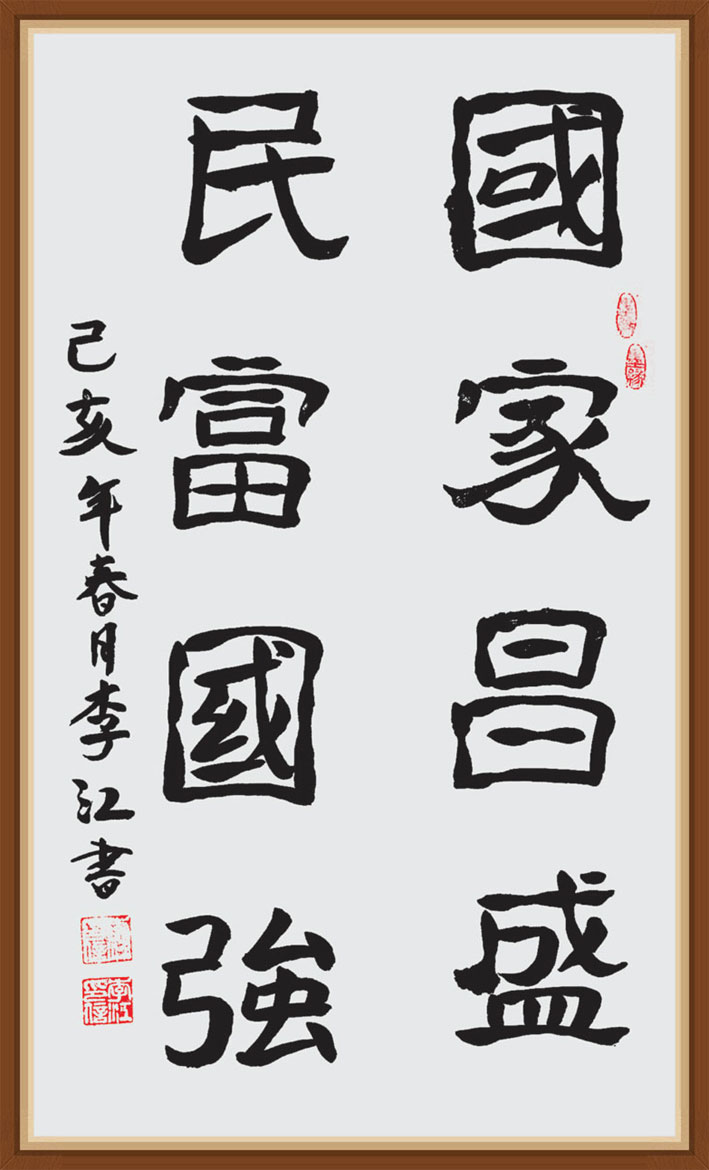 國家昌盛
民富國強
己亥年春月李江書
李江印信